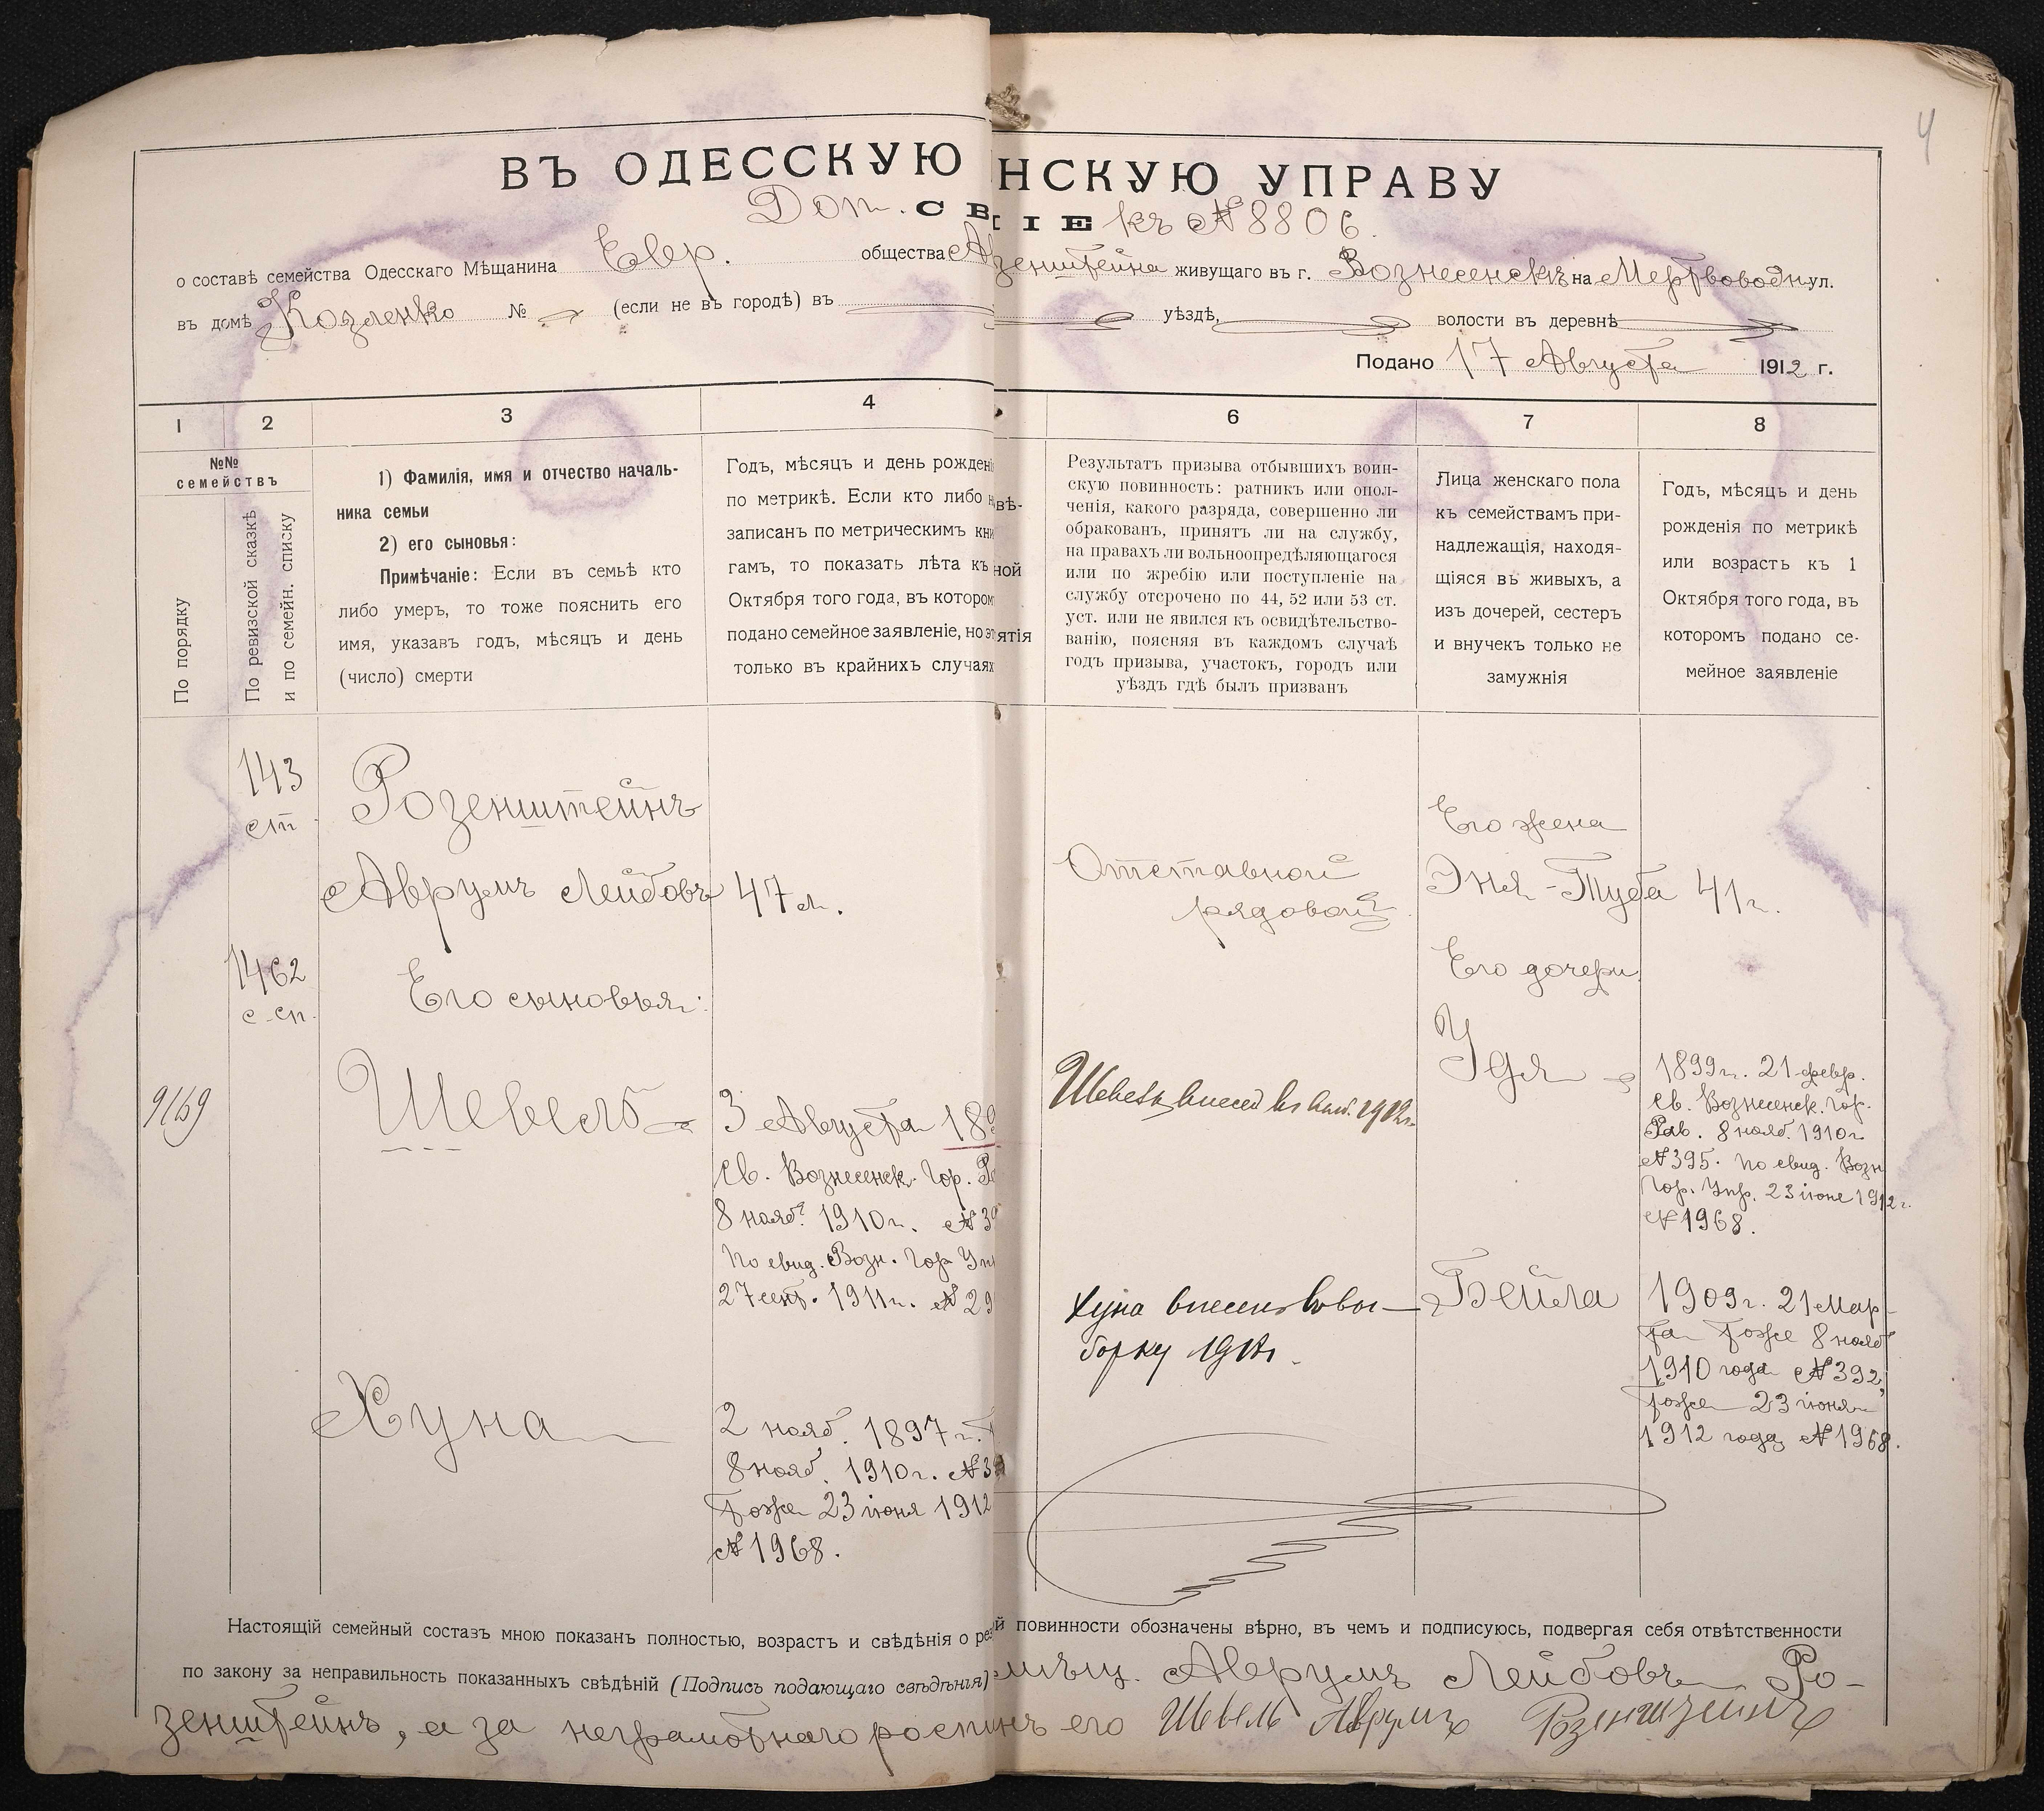 4
ВЪ ОДЕССКУЮ НСКУЮ УПРАВУ
Доп. СВ ІЕ къ № 8806.
о составѣ семейства Одесскаго Мѣщанина Евр. общества зенштейна живущаго въ г. Вознесенскѣ на Мертвоводн ул.
въ домѣ Козленко № (если не въ городѣ) въ уѣздѣ, волости въ деревнѣ
Подано 17 Августа 1912 г.
1 2 3 4 6 7 8
№№ семействъ
По порядку
По ревизской сказкѣ
и по семейн. списку
1) Фамилія, имя и отчество началь-
ника семьи
2) его сыновья:
Примѣчаніе: Если въ семьѣ кто
либо умеръ, то тоже пояснить его
имя, указавъ годъ, мѣсяцъ и день
(число) смерти
Годъ, мѣсяцъ и день рожденi
по метрикѣ. Если кто либо н
записанъ по метрическимъ кни
гамъ, то показать лѣта къ
Октября того года, въ котором
подано семейное заявленіе, но э
только въ крайнихъ случаях
вѣ-
ной
ятія
Результатъ призыва отбывшихъ воин-
скую повинность: ратникъ или опол-
ченія, какого разряда, совершенно ли
обракованъ, принятъ ли на службу,
на правахъ ли вольноопредѣляющагося
или по жребію или поступленіе на
службу отсрочено по 44, 52 или 53 ст.
уст. или не явился къ освидѣтельство-
ванію, поясняя въ каждомъ случаѣ
годъ призыва, участокъ, городъ или
уѣздъ гдѣ былъ призванъ
Лица женскаго пола
къ семействамъ при-
надлежащія, находя-
щіяся въ живыхъ, а
изъ дочерей, сестеръ
и внучекъ только не
замужнія
Годъ, мѣсяцъ и день
рожденія по метрикѣ
или возрастъ къ 1
Октября того года, въ
которомъ подано се-
мейное заявленіе
143
сп
Розенштейнъ
Аврумъ Лейбовъ 47 л.
Отставной
рядовой
Его жена
Эня-Туба 41 г.
1462
с. сп.
Его сыновья:
Его дочери
9169
Шевель
3 Августа 189
св. Вознесенск. Гор. Ра
8 нояб. 1910 г. № 39
По свид. Возн. Гор Уп
27 сент. 1911 г. № 29
Шевель внесен въ 1912 г.
Удя
1899 г. 21 февр.
св. Вознесенск. гор.
Рав. 8 нояб. 1910 г
№ 395. По свид. Возн
Гор. Упр. 23 іюне 1912 г.
№ 1968.
Хуна
2 нояб. 1897 г. Т
8 нояб. 1910 г. № 39
тоже 23 іюня 1912
№ 1968.
Хуна внесенъ вовы-
борку
Бейла
1909 г. 21 Мар-
та тоже 8 нояб
1910 года № 392,
тоже 23 іюня
1912 года № 1968.
Настоящій семейный составъ мною показанъ полностью, возрастъ и свѣдѣнія о рез й повинности обозначены вѣрно, въ чемъ и подписуюсь, подвергая себя отвѣтственности
по закону за неправильность показанныхъ свѣдѣній (Подпись подающаго свѣдѣнія) мѣщ. Аврумъ Лейбовъ Ро-
зенштейнъ, а за неграмотнаго роспи нъ его Шевель Аврумъ Розенштейнъ